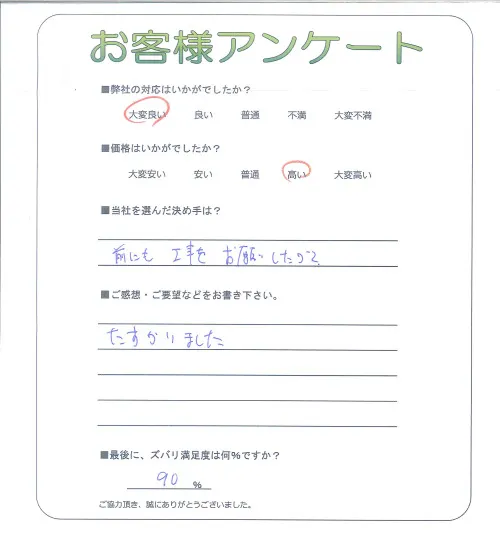 お客様アンケート
■弊社の対応はいかがでしたか？
大変良い 良い 普通 不満 大変不満
■価格はいかがでしたか？
大変安い 安い 普通 高い 大変高い
■当社を選んだ決め手は？
前にも 工事を お願いしたから
■ご感想・ご要望などをお書き下さい。
たすかりました
■最後に、ズバリ満足度は何%ですか？
90 %
ご協力頂き、誠にありがとうございました。